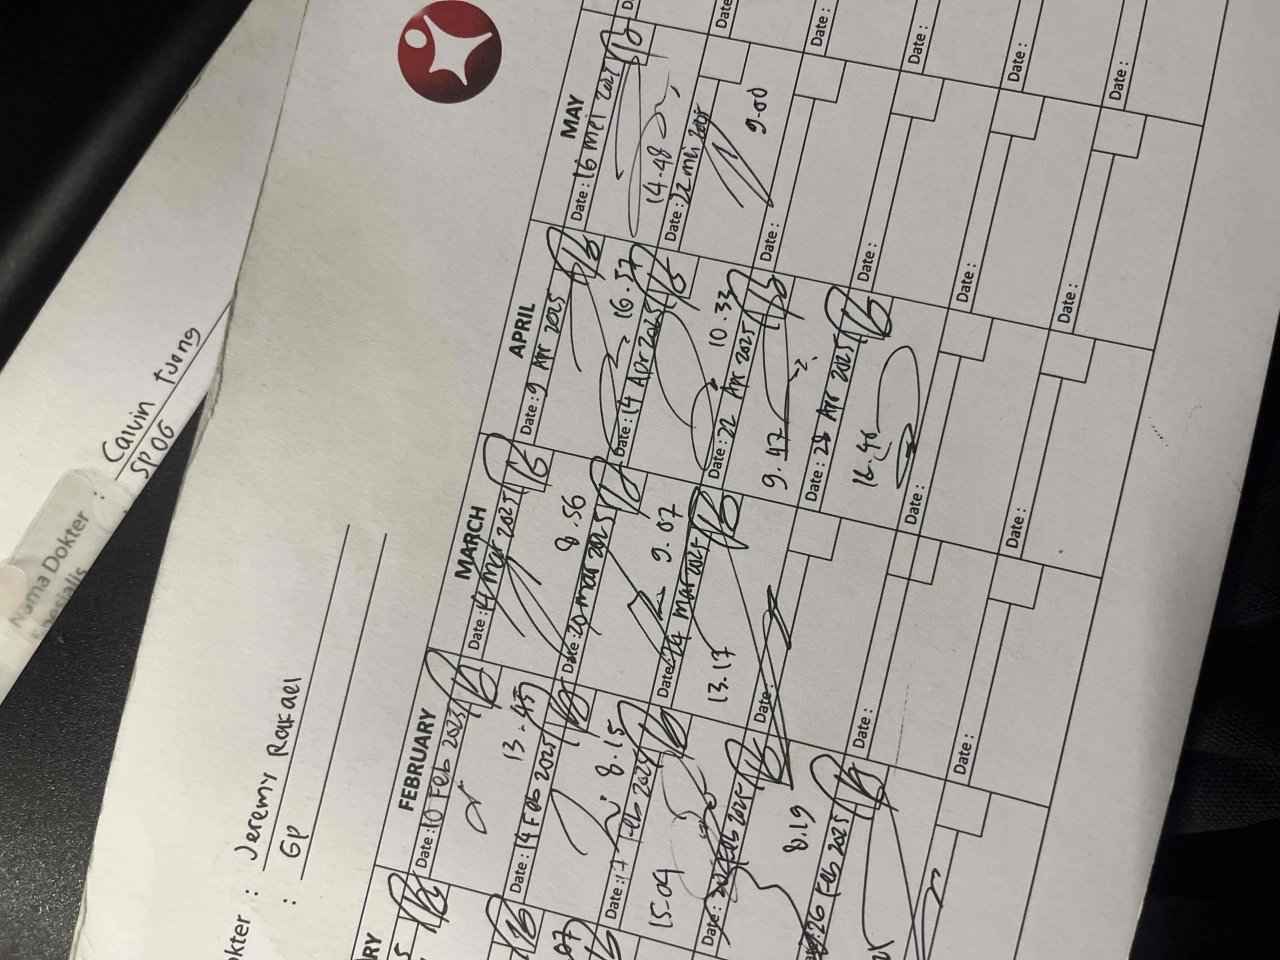 Nama Dokter
: Calvin Tjong
SP OG
: Jeremy Rakael
: GP
FEBRUARY
Date: 10 Feb 2025
13.45
Date: 14 Feb 2025
8.15
Date: 17 Feb 2025
15.09
Date: 20 Feb 2025
8.19
26 Feb 2025
MARCH
Date: 14 Mar 2025
8.56
Date: 20 Mar 2025
9.07
Date: 24 Mar 2025
13.17
Date:
Date:
Date:
APRIL
Date: 9 Apr 2025
16.57
Date: 14 Apr 2025
10.33
Date: 22 Apr 2025
9.47
Date: 28 Apr 2025
16.40
Date:
Date:
MAY
Date: 16 Mei 2025
14.48
Date: 22 Mei 2025
9.00
Date:
Date:
Date:
Date:
Date:
Date:
Date:
Date:
Date: